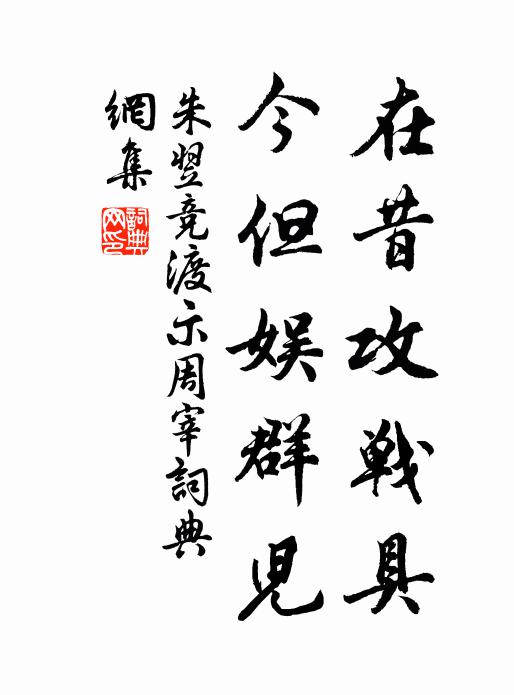 在昔攻戦具
今但娱群児
朱翌竞渡示周宰詞典
網集
詞典网印